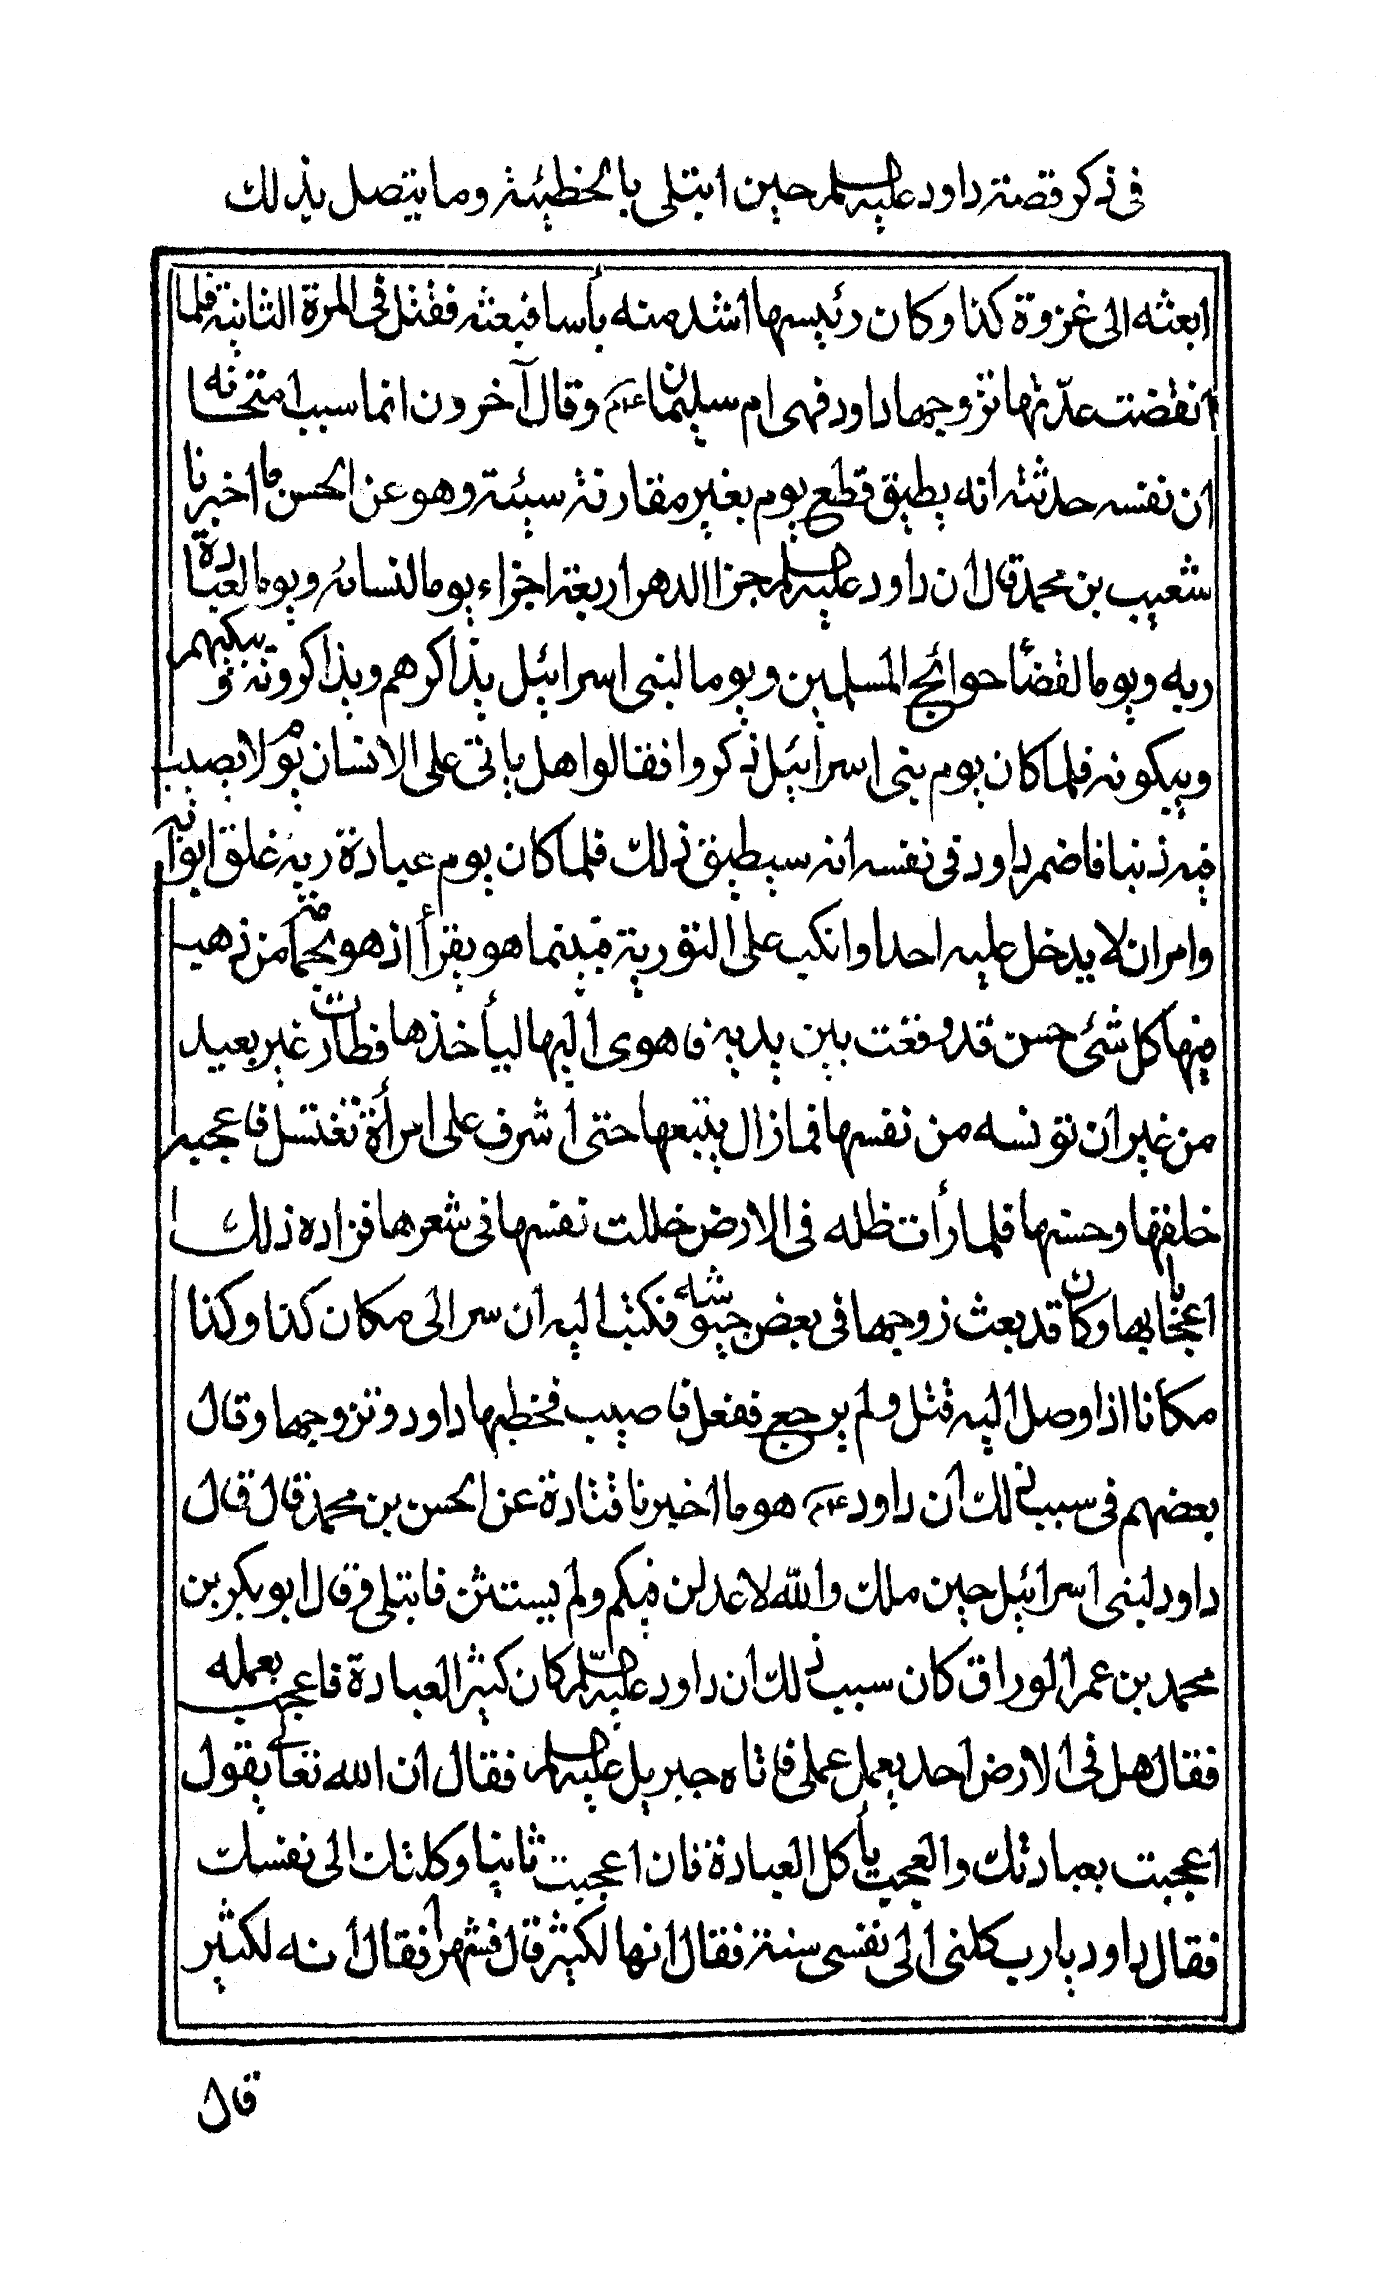 في ذكر قصة داود عليه السلم حين ابتلي بالخطيئة وما يتصل بذلك
ابعثه الى غزوة كذا وكان رئيسها اشد منه بأسا فبعثه فقتل في المرة الثانية فلما
انقضت عدّتها تزوجها داود فهي ام سليمان ع م وقال آخرون انما سبب امتحانه
ان نفسه حدثته انه يطيق قطع يوم بغير مقارنة سيئة وهو عن الحسن ما اخبرنا
شعيب بن محمد قال ان داود عليه السلم جزا الدهر اربعة اجزاء يوما لنسائه ويوما لعبادة
ربه ويوما لقضاء حوائج المسلمين ويوما لبني اسرائيل يذاكرهم ويذاكرونه ويبكيهم
ويبكونه فلما كان يوم بني اسرائيل ذكروا فقالوا هل يأتي على الانسان يوم لا يصيب
فيه ذنبا فاضمر داود في نفسه انه سيطيق ذلك فلما كان يوم عبادة ربه غلق ابوابه
وامر ان لا يدخل عليه احد وانكب على التورية فبينما هو يقرأ اذ هو بحمامة من ذهب
فيها كل شئ حسن قد وقعت بين يديه فاهوى اليها ليأخذها فطارت غير بعيد
من غير ان تونسه من نفسها فما زال يتبعها حتى اشرف على امرأة تغتسل فاعجبه
خلقها وحسنها فلما رأت ظله في الارض خللت نفسها في شعرها فزاده ذلك
اعجابا بها وكان قد بعث زوجها في بعض جيوشه فكتب اليه ان سر الى مكان كذا وكذا
مكانا اذا وصل اليه قتل ولم يرجع ففعل فاصيب فخطبها داود وتزوجها وقال
بعضهم في سبب ذلك ان داود ع م هو ما اخبرنا قتادة عن الحسن بن محمد قال قال
داود لبني اسرائيل حين ملك والله لاعدلن فيكم ولم يستثن فابتلي وقال ابو بكر بن
محمد بن عمر الوراق كان سبب ذلك ان داود عليه السلم كان كثير العبادة فاعجب بعمله
فقال هل في الارض احد يعمل عملي فاتاه جبريل عليه السلم فقال ان الله تعالى يقول
اعجبت بعبادتك والعجب يأكل العبادة فان اعجبت ثانيا وكلتك الى نفسك
فقال داود يا رب كلني الى نفسي سنة فقال انها لكثيرة قال فشهرا فقال انه لكثير
قال